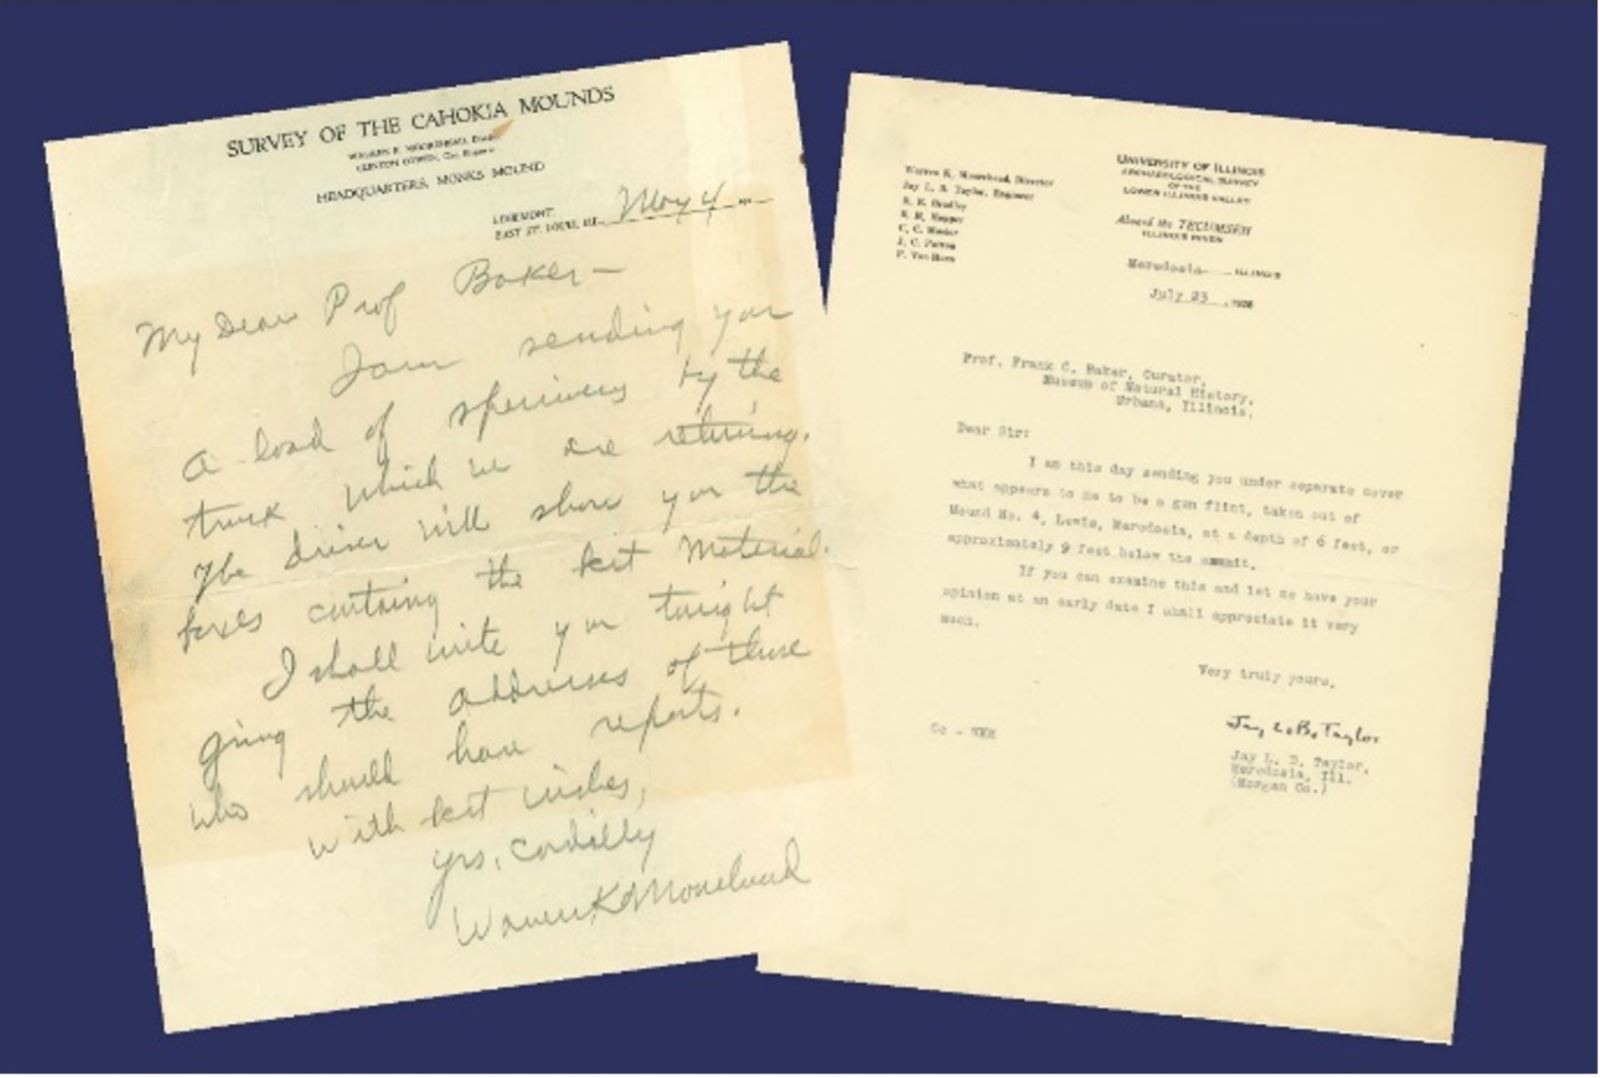 SURVEY OF THE CAHOKIA MOUNDS
WARREN K. MOOREHEAD,
CLINTON COWEN,
HEADQUARTERS, MONKS MOUND
EDGEMONT,
EAST ST. LOUIS, ILL. May 4
My Dear Prof Baker—
I am sending you
a load of specimens by the
truck which we are returning.
The driver will show you the
boxes containing the best material.
I shall write you tonight
giving the addresses of those
who should have reports.
With best wishes,
yrs. cordially
Warren K Moorehead
UNIVERSITY OF ILLINOIS
ARCHAEOLOGICAL SURVEY
OF THE
LOWER ILLINOIS VALLEY
Aboard the TECUMSEH
ILLINOIS RIVER
Warren K. Moorehead, Director
Jay L. B. Taylor, Engineer
Meredosia ILLINOIS
July 23
Prof. Frank C. Baker, Curator,
Museum of Natural History,
Urbana, Illinois.
Dear Sir:
I am this day sending you under separate cover
what appears to me to be a gun flint, taken out of
Mound No. 4, Lewis, Meredosia, at a depth of 6 feet, or
approximately 9 feet below the summit.
If you can examine this and let me have your
opinion at an early date I shall appreciate it very
much.
Very truly yours,
Jay L. B. Taylor
Cc - WKM
Jay L. B. Taylor,
Meredosia, Ill.
(Morgan Co.)